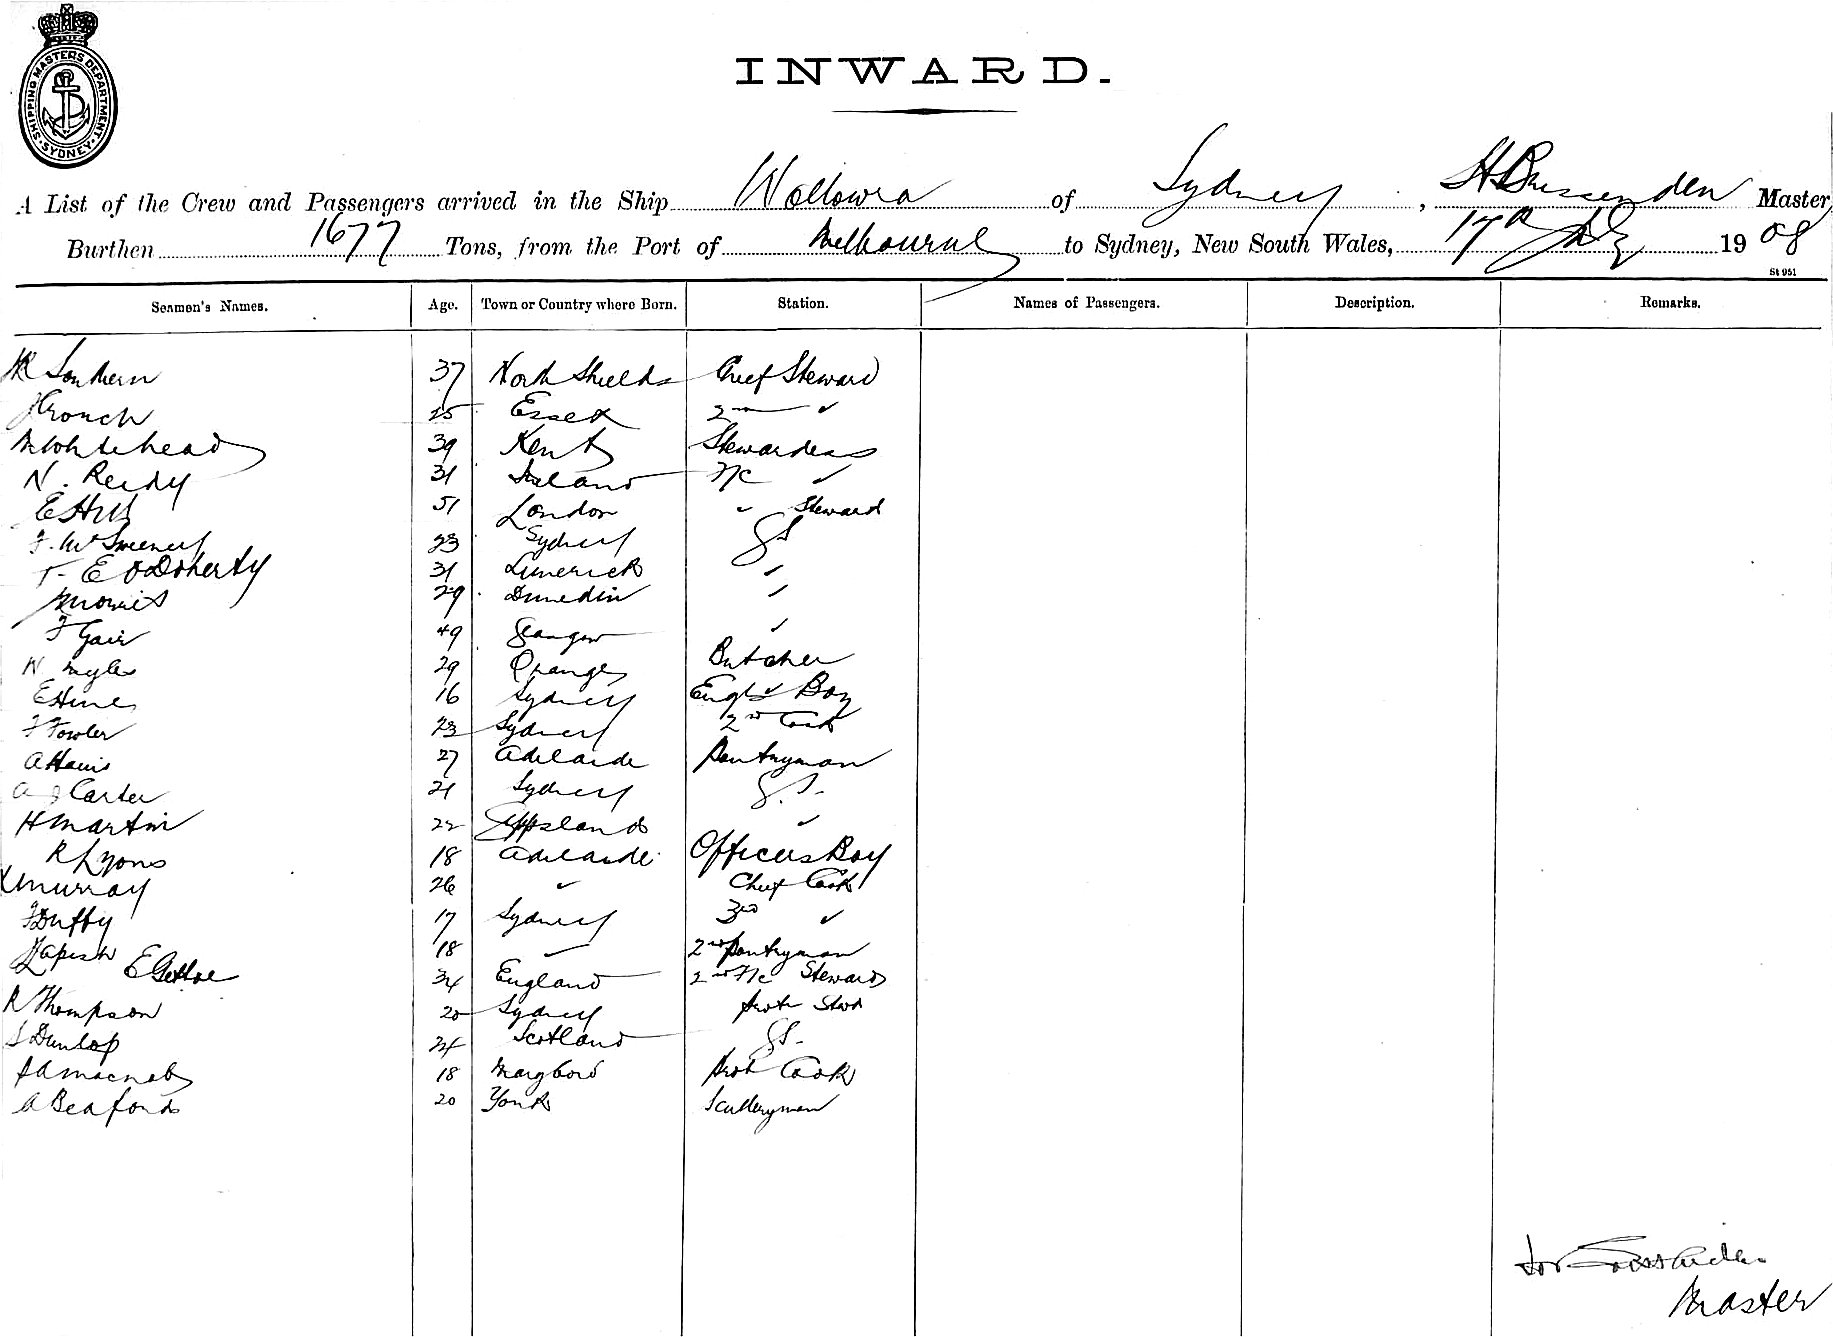 SHIPPING MASTERS DEPARTMENT · SYDNEY ·
INWARD.
A List of the Crew and Passengers arrived in the Ship Wollowra of Sydney, H Brissenden Master
Burthen 1677 Tons, from the Port of Melbourne to Sydney, New South Wales, 17th July 1908
St 951
Seamen's Names. Age. Town or Country where Born. Station. Names of Passengers. Description. Remarks.
Southern 37 North Shields Chief Steward
J Crouch 25 Essex 2nd "
M Whitehead 39 Kent Stewardess
N. Reidy 31 Ireland F/C "
E Hill 51 London " Steward
F. McSweeney 23 Sydney GS
T. E O'Doherty 31 Limerick "
Morris 29 Dunedin "
F Gair 49 Glasgow "
W Myles 29 Orange Butcher
E Hine 16 Sydney Engrs Boy
F Fowler 23 Sydney 2nd Cook
A Harris 27 Adelaide Pantryman
A J Carter 21 Sydney G.S.
H Martin 22 Gippsland "
R Lyons 18 Adelaide Officers Boy
Murray 26 " Chief Cook
F Duffy 17 Sydney 3rd "
18 " 2nd Pantryman
E 34 England 2nd F/C Steward
R Thompson 20 Sydney
S Dunlop 24 Scotland GS.
A Macnab 18 Marybord Cook
A Beaford 20 York Sculleryman
for
Master